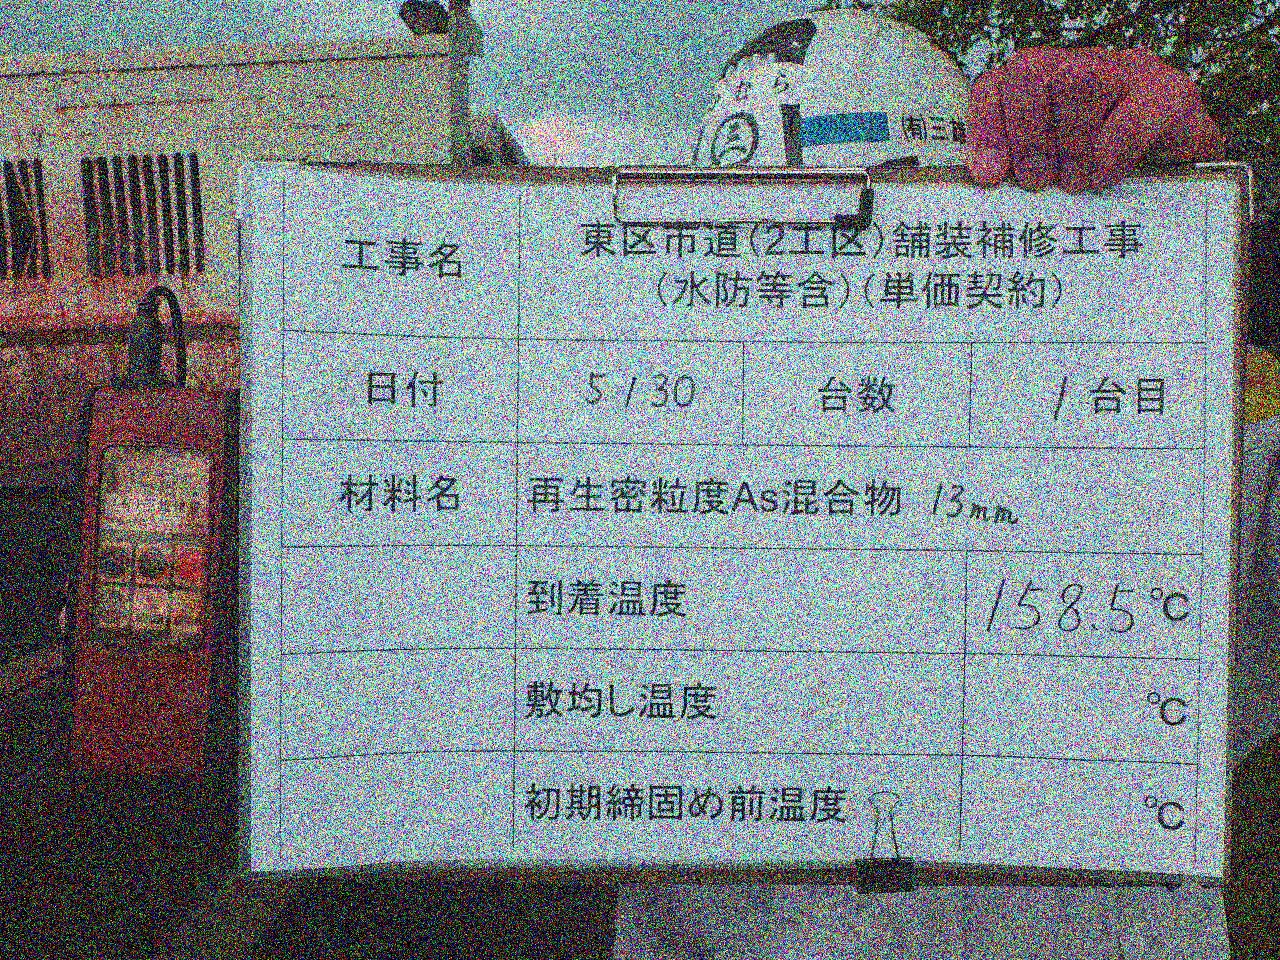 おら
㊂
(有)三
工事名 東区市道(2工区)舗装補修工事
(水防等含)(単価契約)
日付 5/30 台数 1台目
材料名 再生密粒度As混合物 13mm
到着温度 158.5℃
敷均し温度 ℃
初期締固め前温度 ℃